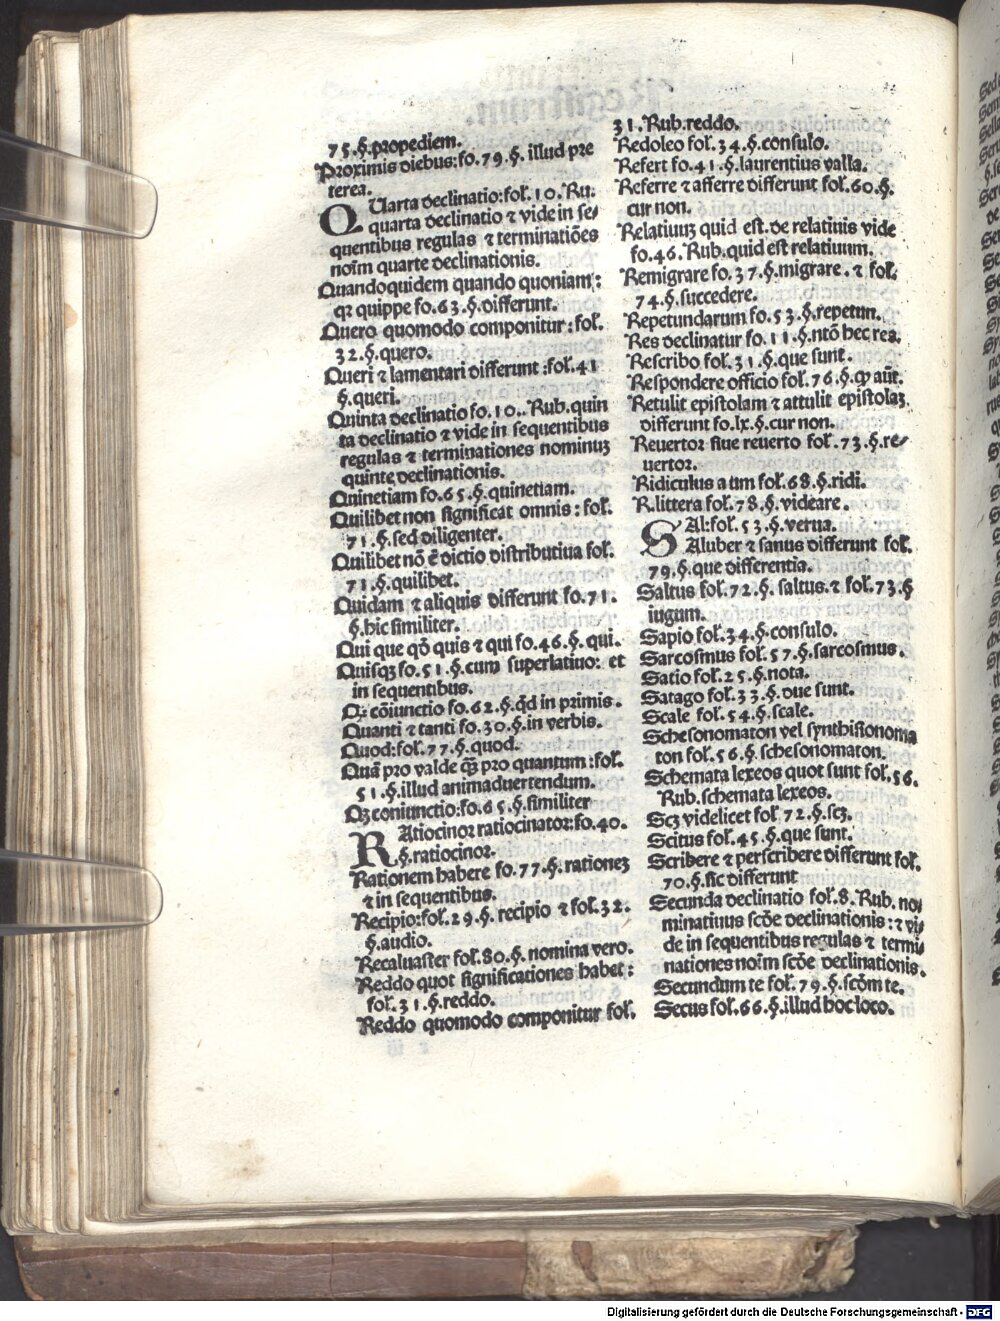 75.§.propediem.
Proximis diebus:fo.79.§. illud pre
terea.
QUarta declinatio:fol.10.Ru.
quarta declinatio ⁊ vide in se/
quentibus regulas ⁊ terminatiões
noīm quarte declinationis.
Quandoquidem quando quoniam:
qꝛ quippe fo.63.§.differunt.
Quero quomodo componitur:fol.
32.§.quero.
Queri ⁊ lamentari differunt:fol.41
§.queri.
Quinta declinatio fo.10..Rub.quin
ta declinatio ⁊ vide in sequentibus
regulas ⁊ terminationes nominuȝ
quinte declinationis.
Quinetiam fo.65.§.quinetiam.
Quilibet non significat omnis:fol.
71.§.sed diligenter.
Quilibet nō ē dictio distributiua fol.
71.§.quilibet.
Quidam ⁊ aliquis differunt fo.71.
§.hic similiter.
Qui que qō quis ⁊ qui fo.46.§. qui.
Quisqȝ fo.51.§.cum superlatiuo: et
in sequentibus.
Qꝛ cōiunctio fo.62.§.qd in primis.
Quanti ⁊ tanti fo.30.§.in verbis.
Quod:fol.77.§.quod.
Quā pro valde qȝ pro quantum:fol.
51.§.illud animaduertendum.
Qȝ coniunctio:fo.65.§.similiter
RAtiocinor ratiocinator:fo.40.
§.ratiocinor.
Rationem habere fo.77.§.rationeȝ
⁊ in sequentibus.
Recipio:fol.29.§. recipio ⁊ fol.32.
§.audio.
Recaluaster fol.80.§. nomina vero.
Reddo quot significationes habet:
fol.31.§.reddo.
Reddo quomodo componitur fol.
31.Rub.reddo.
Redoleo fol.34.§.consulo.
Refert fo.41.§.laurentius valla.
Referre ⁊ afferre differunt fol.60.§.
cur non.
Relatiuuȝ quid est.de relatiuis vide
fo.46.Rub.quid est relatiuum.
Remigrare fo.37.§.migrare.⁊ fol.
74.§.succedere.
Repetundarum fo.53.§.repetun.
Res declinatur fo.11.§.ntō hec res.
Rescribo fol.31.§.que sunt.
Respondere officio fol.76.§.qp aūt.
Retulit epistolam ⁊ attulit epistolaȝ
differunt fo.lx.§.cur non.
Reuertor siue reuerto fol.73.§.re/
uertor.
Ridiculus a um fol.68.§.ridi.
R.littera fol.78.§.videare.
SAl:fol.53.§.verua.
Aluber ⁊ sanus differunt fol.
79.§.que differentia.
Saltus fol.72.§.saltus.⁊ fol.73.§
iugum.
Sapio fol.34.§.consulo.
Sarcosmus fol.57.§.sarcosmus.
Satio fol.25.§.nota.
Satago fol.33.§.due sunt.
Scale fol.54.§.scale.
Schesonomaton vel synthistonoma
ton fol.56.§.schesonomaton.
Schemata lexeos quot sunt fol.56.
Rub.schemata lexeos.
Scȝ videlicet fol 72.§.scȝ.
Scitus fol.45.§.que sunt.
Scribere ⁊ perscribere differunt fol.
70.§.sic differunt
Secunda declinatio fol.8.Rub.no/
minatiuus scōe declinationis:⁊ vi/
de in sequentibus regulas ⁊ termi/
nationes noīm scōe declinationis.
Secundum te fol.79.§.scōm te.
Secus fol.66.§.illud hoc loco.
Digitalisierung gefördert durch die Deutsche Forschungsgemeinschaft - DFG